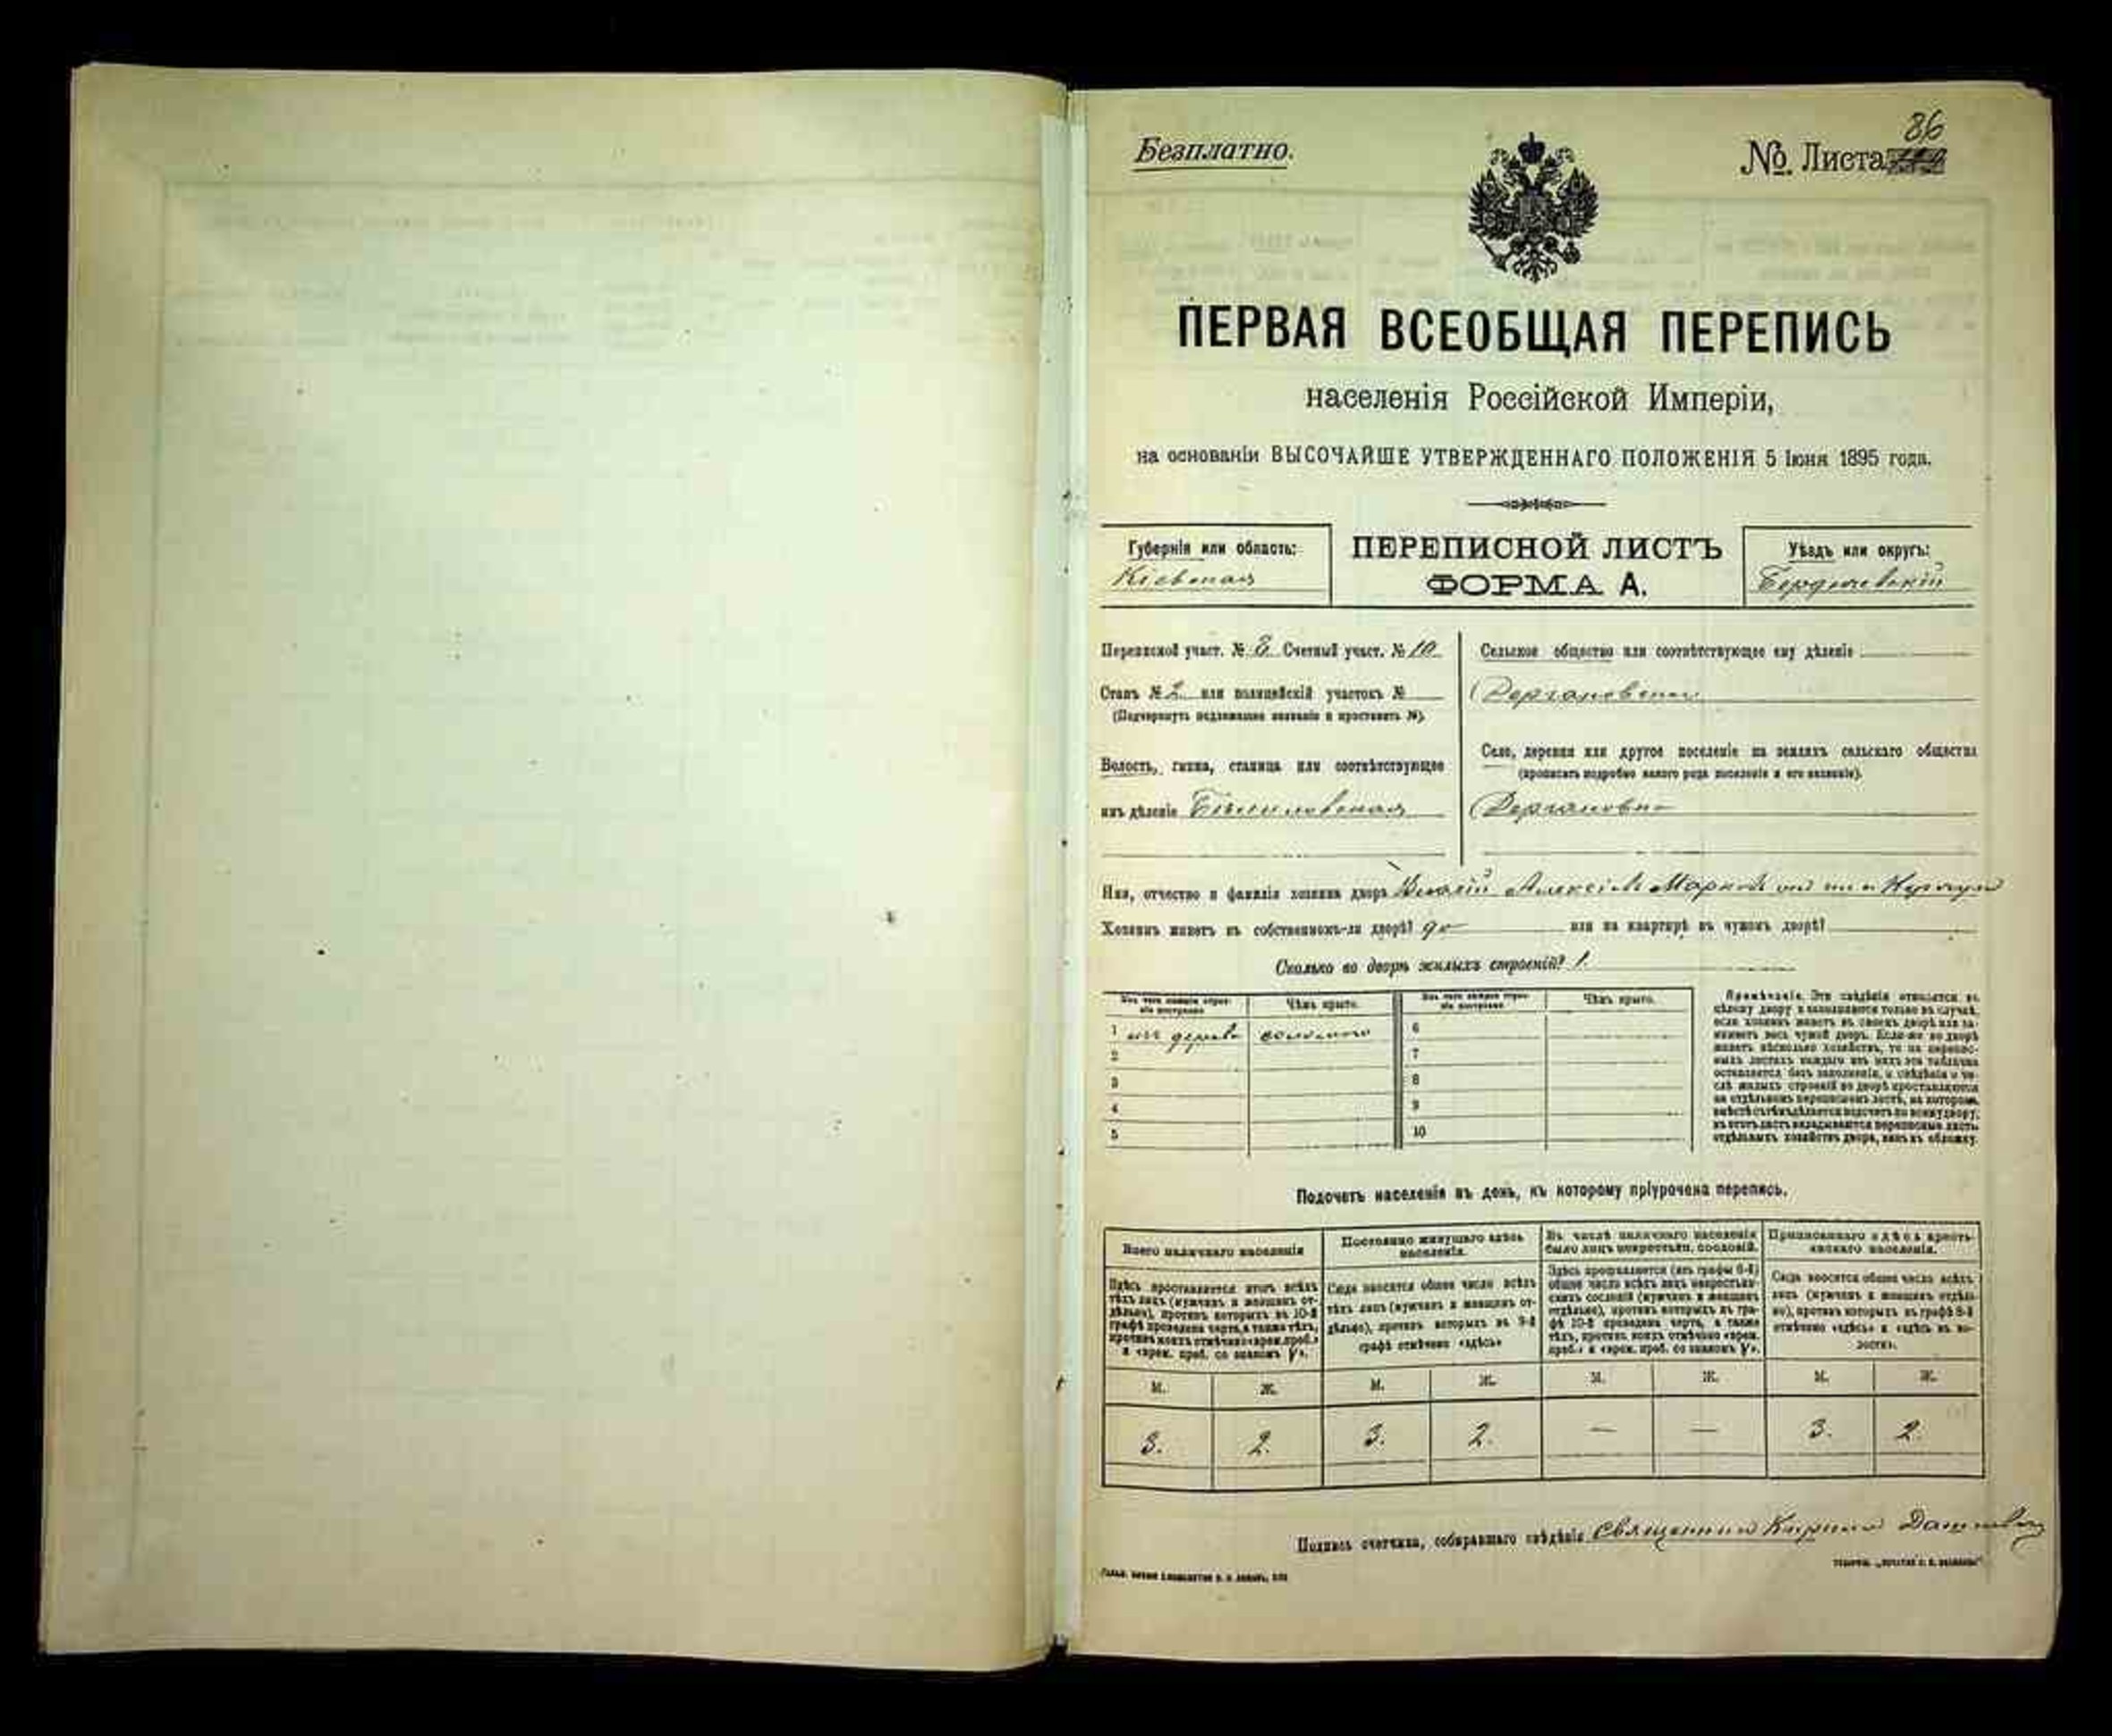 Безплатно.
86
№ Листа
ПЕРВАЯ ВСЕОБЩАЯ ПЕРЕПИСЬ
населенія Россійской Имперіи,
на основаніи ВЫСОЧАЙШЕ УТВЕРЖДЕННАГО ПОЛОЖЕНІЯ 5 Іюня 1895 года.
Губернія или область:
Кіевская
ПЕРЕПИСНОЙ ЛИСТЪ
ФОРМА А.
Уѣздъ или округъ:
Бердичевскій
Переписной участ. № 8 Счетный участ. № 10
Станъ № 2 или полицейскій участокъ №
(Подчеркнуть надлежащее названіе и проставить №).
Волость, гмина, станица или соотвѣтствующее
имъ дѣленіе Бѣлиловская
Сельское общество или соотвѣтствующее ему дѣленіе
Село, деревня или другое поселеніе на земляхъ сельскаго общества
(прописать подробно какого рода поселеніе и его названіе).
Имя, отчество и фамилія хозяина двора
Хозяинъ живетъ въ собственномъ-ли дворѣ? да или на квартирѣ въ чужомъ дворѣ?
Сколько во дворѣ жилыхъ строеній? 1.
Изъ чего жилыя строенія построены
Чѣмъ крыто.
Изъ чего жилыя строенія построены
Чѣмъ крыто.
1 изъ дерева соломою
2
3
4
5
6
7
8
9
10
Примѣчаніе. Эти свѣдѣнія относятся къ
цѣлому двору и заполняются только въ случаѣ,
если хозяинъ живетъ въ своемъ дворѣ или за-
нимаетъ весь чужой дворъ. Если-же во дворѣ
живетъ нѣсколько хозяйствъ, то на перепис-
ныхъ листахъ каждаго изъ нихъ эта табличка
оставляется безъ заполненія, а свѣдѣнія о чи-
слѣ жилыхъ строеній во дворѣ проставляются
на отдѣльномъ переписномъ листѣ, на которомъ
вмѣстѣ съ тѣмъ дѣлается подсчетъ по всему двору;
въ этотъ листъ вкладываются переписные листы
отдѣльныхъ хозяйствъ двора, какъ въ обложку.
Подсчетъ населенія въ день, къ которому пріурочена перепись.
Всего наличнаго населенія
Здѣсь проставляется итогъ всѣхъ
тѣхъ лицъ (мужчинъ и женщинъ от-
дѣльно), противъ которыхъ въ 10-й
графѣ проведена черта, а также тѣхъ,
противъ коихъ отмѣчено «врем. преб.»
и «врем. преб. со знакомъ V».
Постоянно живущаго здѣсь
населенія.
Сюда вносится общее число всѣхъ
тѣхъ лицъ (мужчинъ и женщинъ от-
дѣльно), противъ которыхъ въ 9-й
графѣ отмѣчено «здѣсь»
Въ числѣ наличнаго населенія
было лицъ некрестьян. сословій.
Здѣсь проставляется (изъ графы 6-й)
общее число всѣхъ лицъ некрестьян-
скихъ сословій (мужчинъ и женщинъ
отдѣльно), противъ которыхъ въ гра-
фѣ 10-й проведена черта, а также
тѣхъ, противъ коихъ отмѣчено «врем.
преб.» и «врем. преб. со знакомъ V».
Приписаннаго здѣсь кресть-
янскаго населенія.
Сюда вносится общее число всѣхъ
лицъ (мужчинъ и женщинъ отдѣль-
но), противъ которыхъ въ графѣ 8-й
отмѣчено «здѣсь» и «здѣсь въ во-
лости».
М. Ж. М. Ж. М. Ж. М. Ж.
3. 2. 3. 2. — — 3. 2.
Подпись счетчика, собиравшаго свѣдѣнія Священникъ Кириллъ